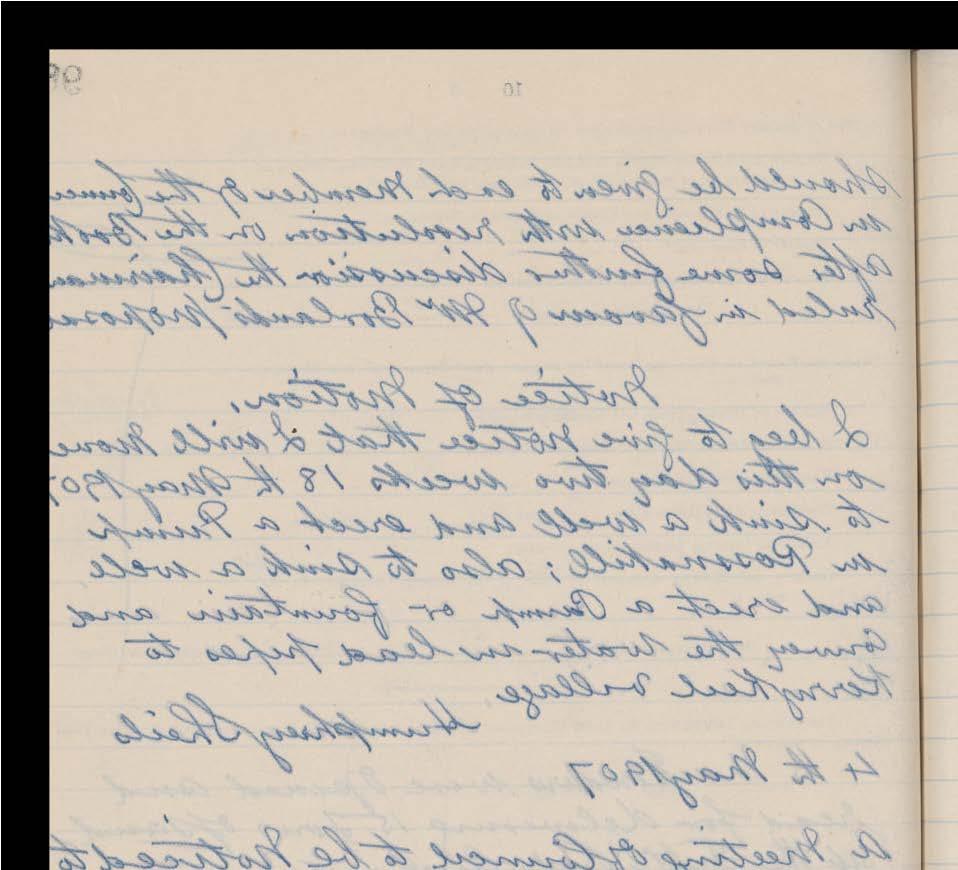 96
10
should be given to each member of the Counc
in Complience with resolution on the Book
after some further discussion the Chairman
ruled in favour of Mr Borlands proposa
Notice of Motion.
I beg to give notice that I will move
on this day two weeks 18th May 1907
to sink a well and erect a Pump
in Rossnakill; also to sink a well
and erect a Pump or fountain and
convey the water in lead pipes to
Kerrykeel village.
Humphrey Sheils
4th May 1907
A Meeting of Council to be Noticed to